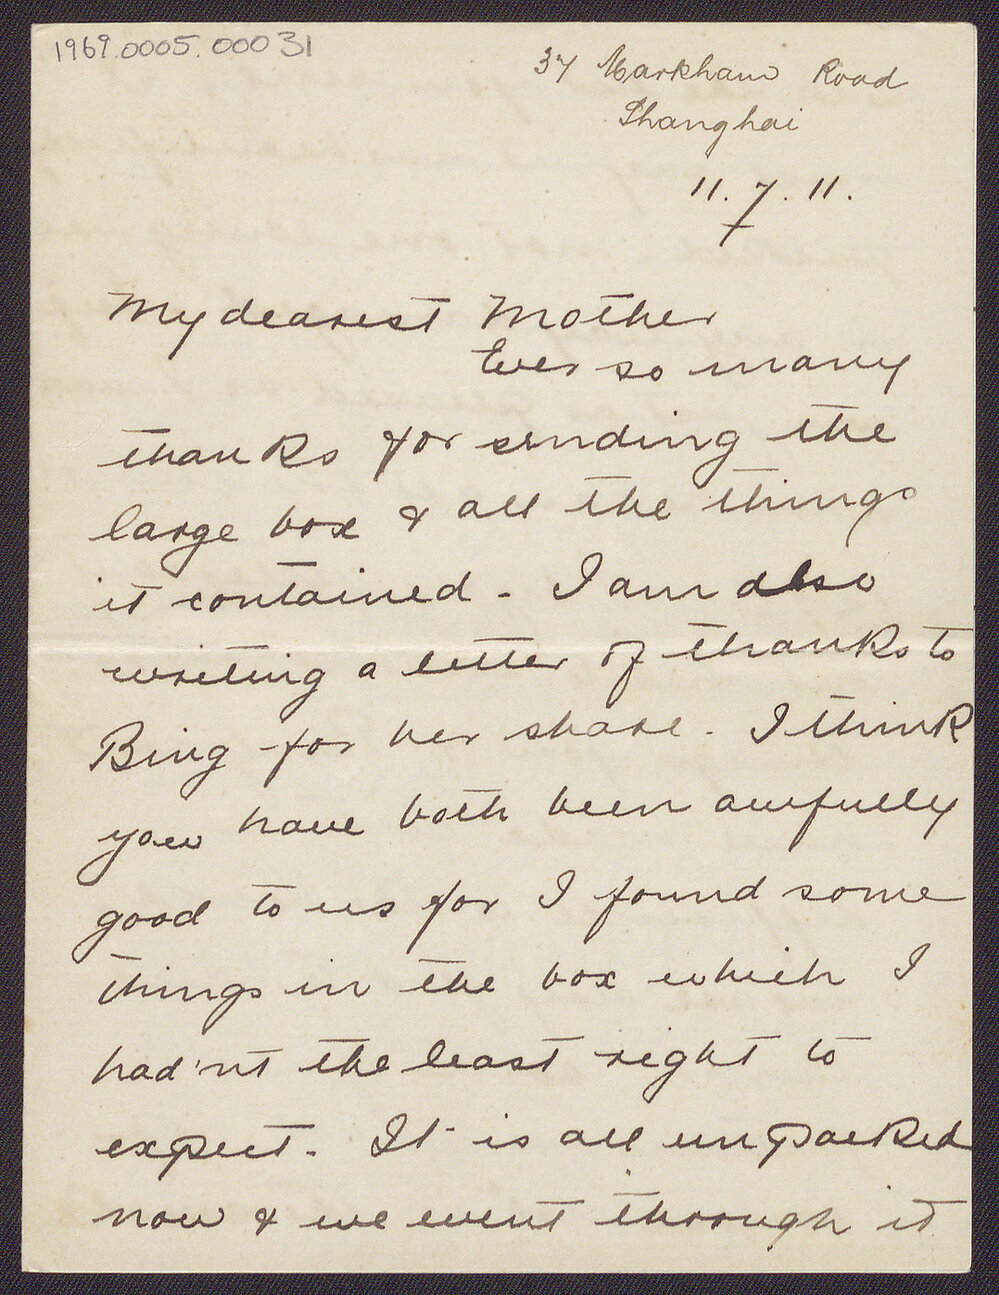 1969.0005.00031
37 Markham Road
Shanghai
11.7.11.
My dearest Mother
Ever so many
thanks for sending the
large box & all the things
it contained - I am also
writing a letter of thanks to
Bing for her share. I think
you have both been awfully
good to us for I found some
things in the box which I
had'nt the least right to
expect. It is all unpacked
now & we went through it